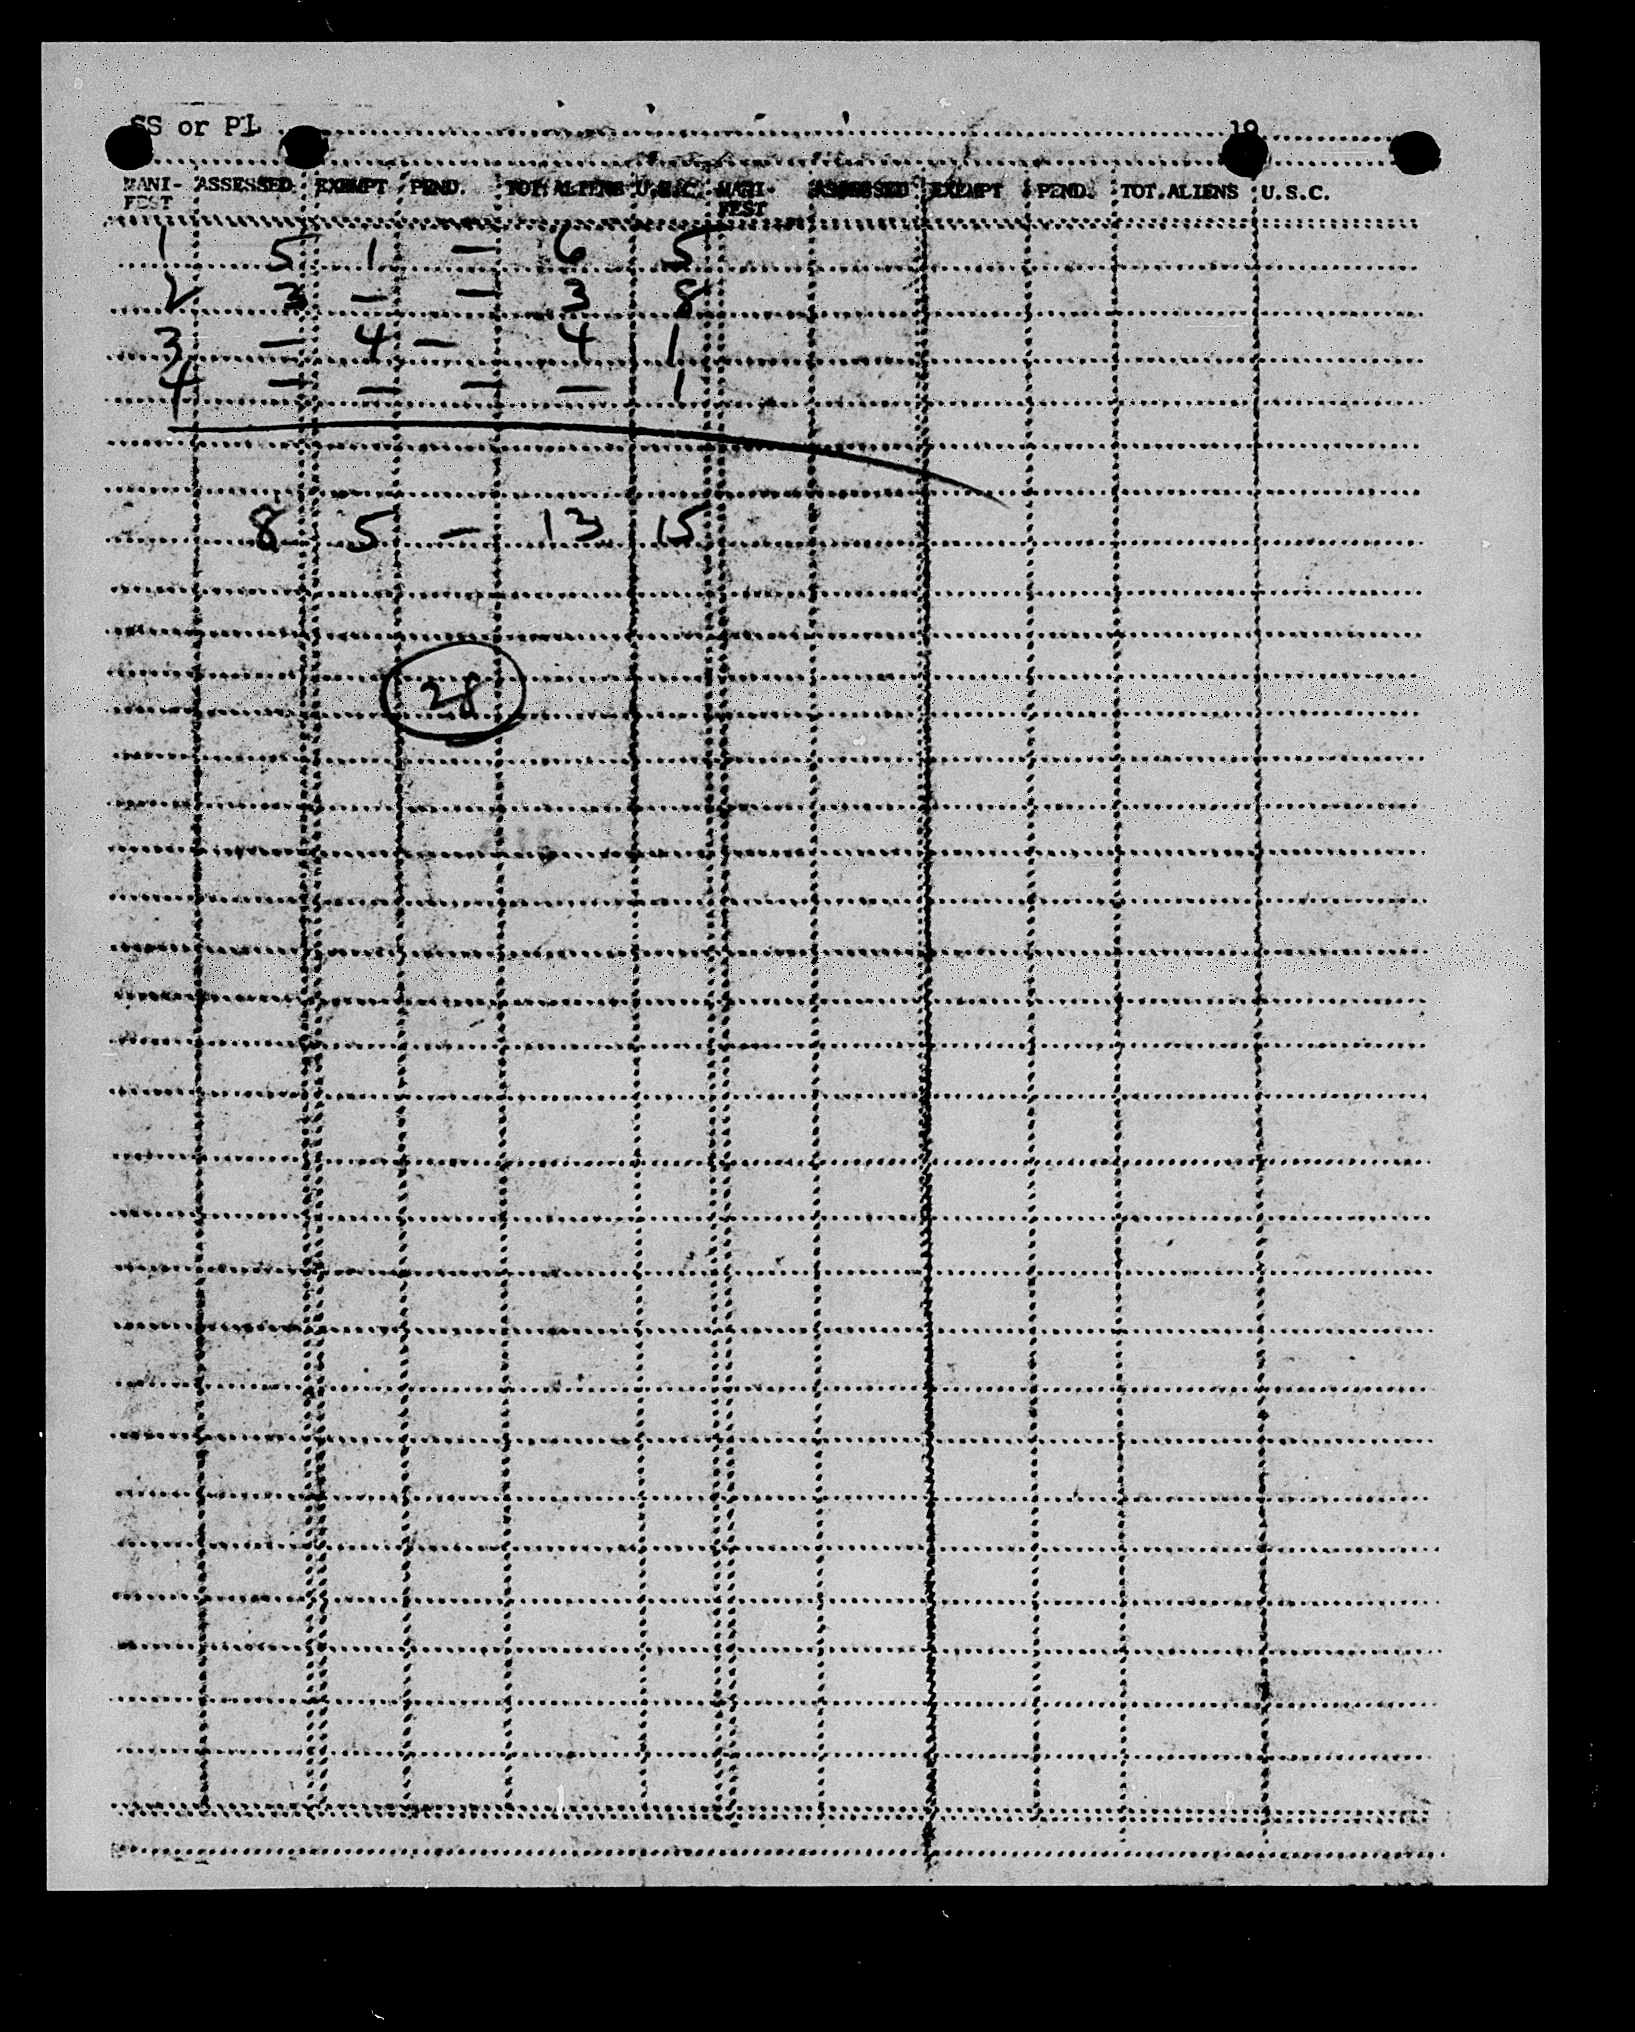 SS or PL 19
MANI- ASSESSED EXEMPT PEND. TOT.ALIENS U.S.C. MANI- ASSESSED EXEMPT PEND. TOT.ALIENS U.S.C.
FEST FEST
1 5 1 — 6 5
2 3 — — 3 8
3 — 4 — 4 1
4 — — — — 1
8 5 — 13 15
28